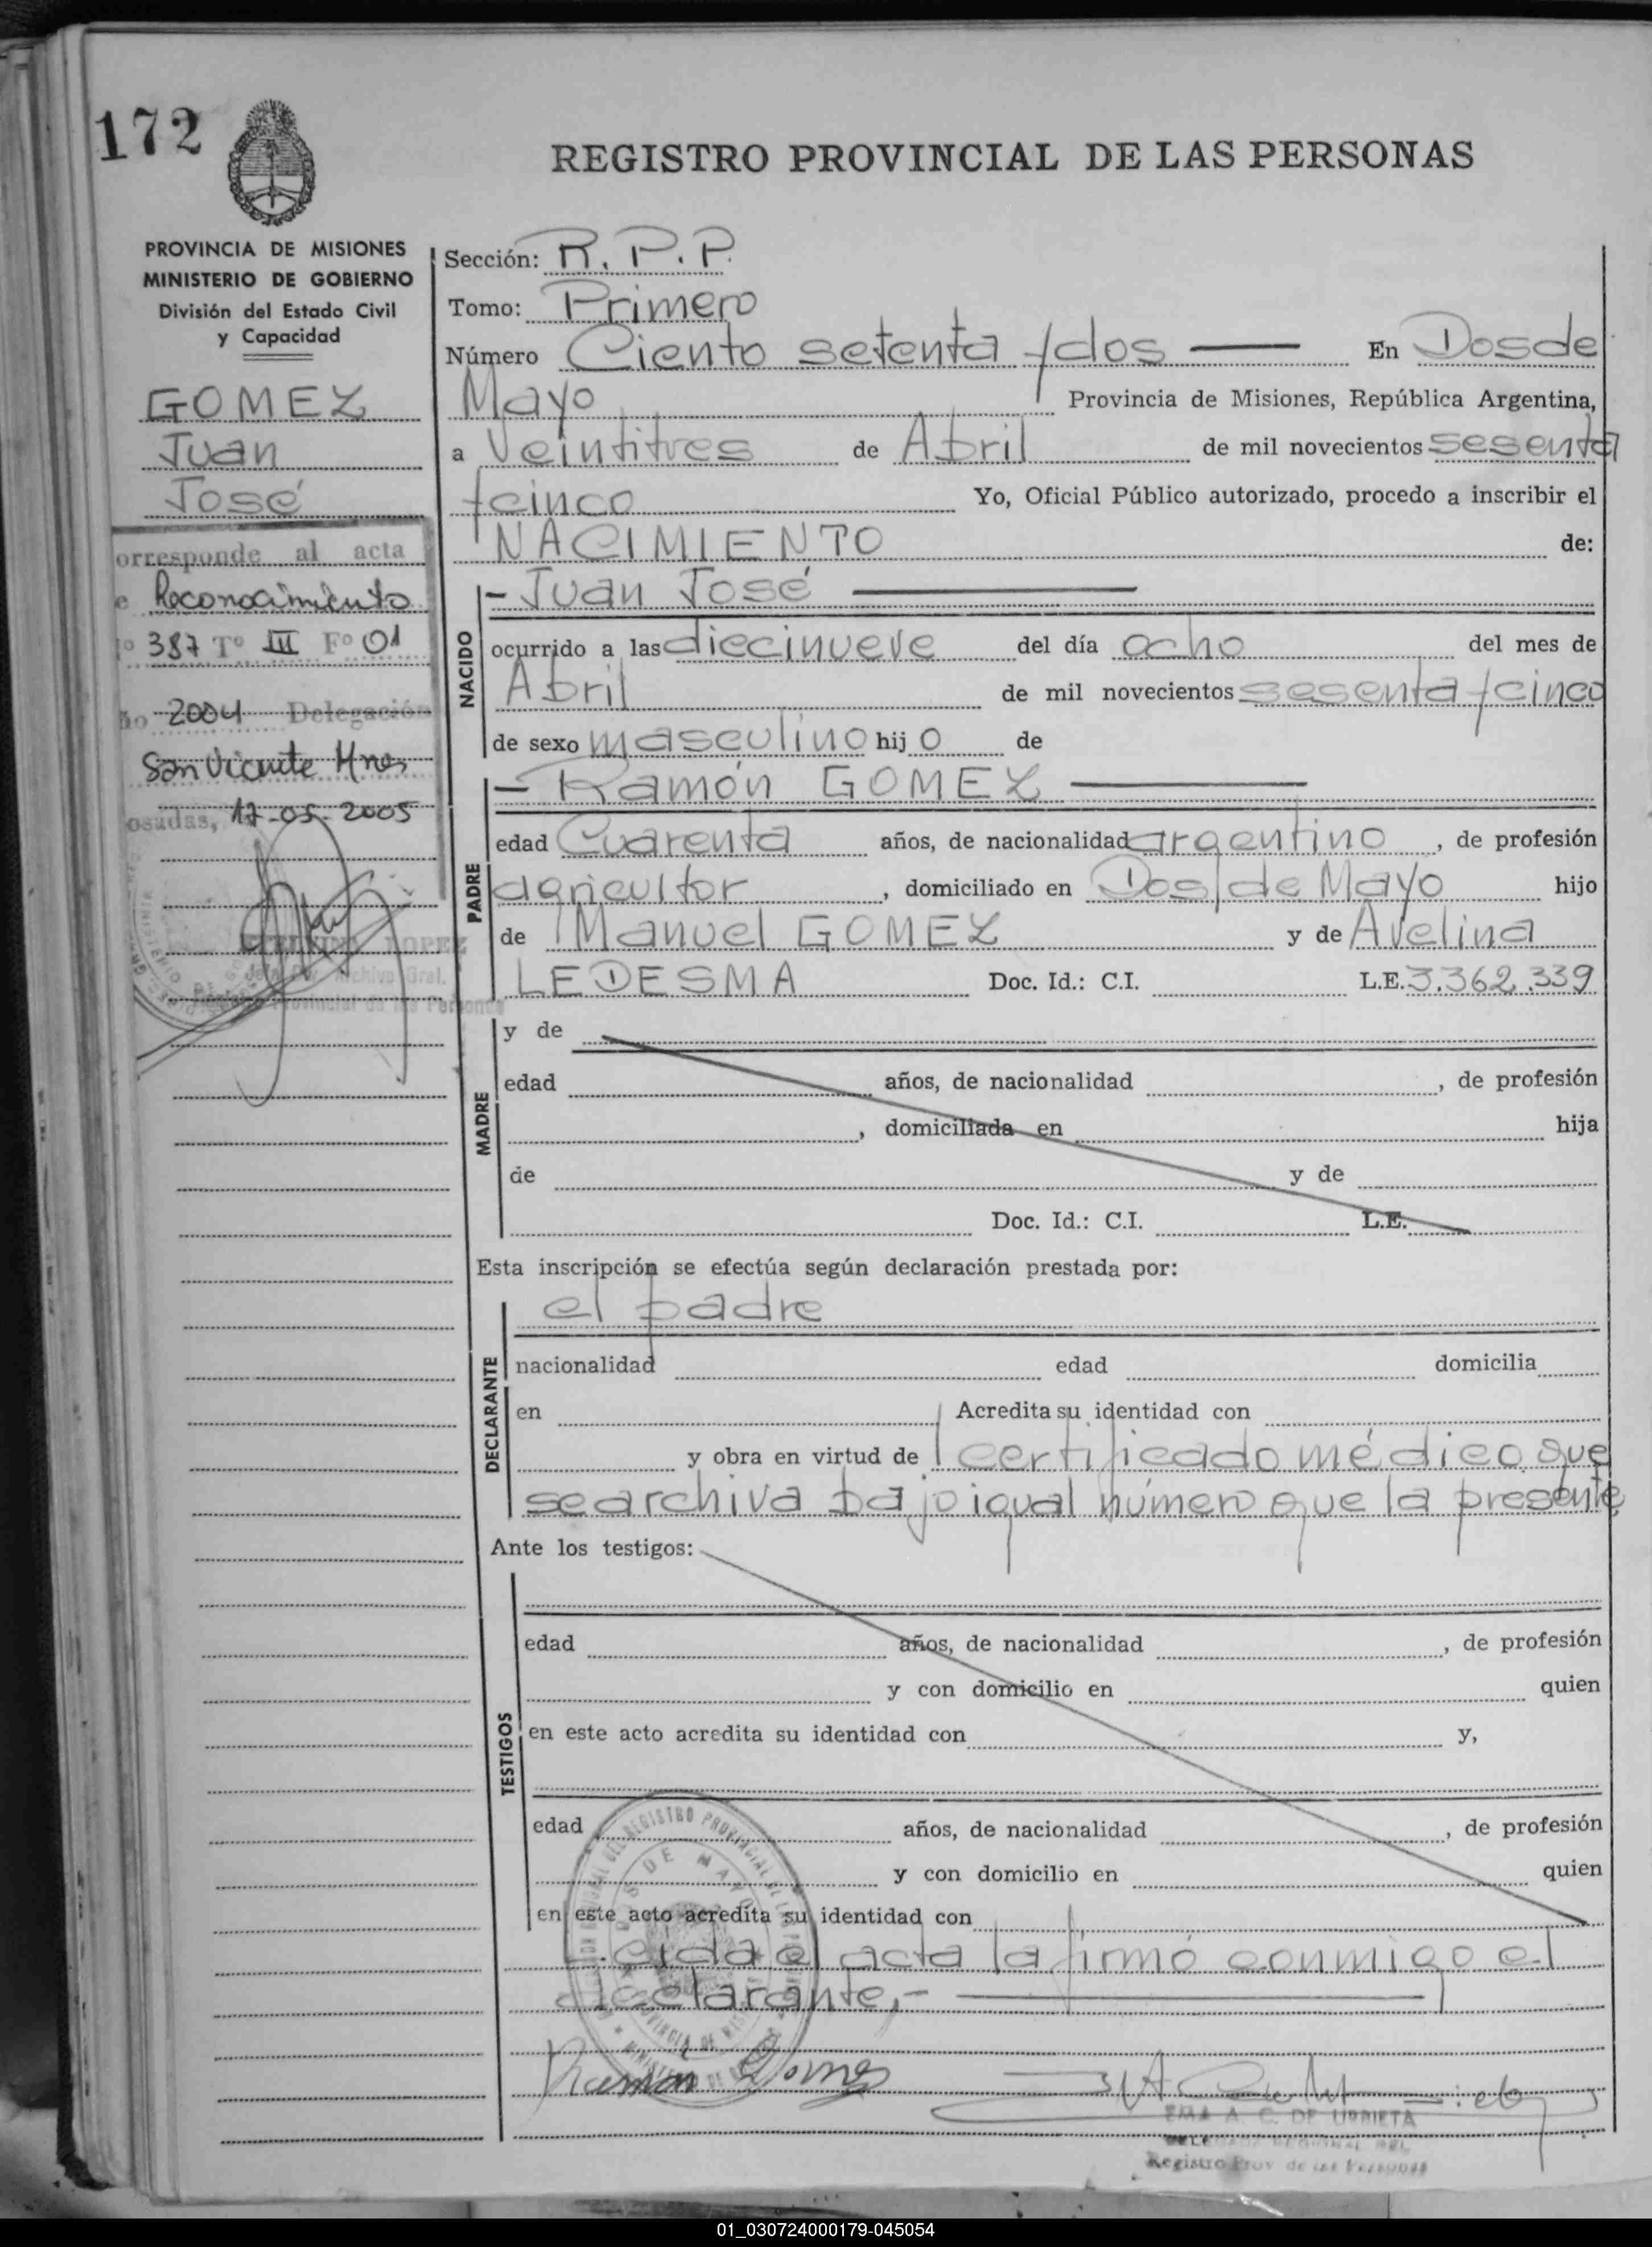 172
REGISTRO PROVINCIAL DE LAS PERSONAS
PROVINCIA DE MISIONES
MINISTERIO DE GOBIERNO
División del Estado Civil
y Capacidad
GOMEZ
Juan
José
orresponde al acta
e Reconocimiento
º 387 Tº III Fº 01
ño 2004 Delegación
San Vicente Mnes
osadas, 17-05-2005
LOPEZ
Jefe Div. Archivo Gral.
Provincial de las Personas
Sección: R.P.P.
Tomo: Primero
Número Ciento setenta y dos En Dos de
Mayo Provincia de Misiones, República Argentina,
a Veintitres de Abril de mil novecientos sesenta
y cinco Yo, Oficial Público autorizado, procedo a inscribir el
NACIMIENTO de:
NACIDO
- Juan José
ocurrido a las diecinueve del día ocho del mes de
Abril de mil novecientos sesenta y cinco
de sexo masculino hijo de
PADRE
- Ramón GOMEZ
edad Cuarenta años, de nacionalidad argentino, de profesión
agricultor, domiciliado en Dos de Mayo hijo
de Manuel GOMEZ y de Avelina
LEDESMA Doc. Id.: C.I. L.E. 3.362.339
MADRE
y de
edad años, de nacionalidad , de profesión
, domiciliada en hija
de y de
Doc. Id.: C.I. L.E.
Esta inscripción se efectúa según declaración prestada por:
DECLARANTE
el padre
nacionalidad edad domicilia
en Acredita su identidad con
y obra en virtud de certificado médico que
se archiva bajo igual número que la presente
Ante los testigos:
TESTIGOS
edad años, de nacionalidad , de profesión
y con domicilio en quien
en este acto acredita su identidad con y,
edad años, de nacionalidad , de profesión
y con domicilio en quien
en este acto acredita su identidad con
Leida el acta la firmó conmigo el
declarante,-
Ramon Gomes
EMA A. C. DE URRIETA
DELEGADA REGIONAL DEL
Registro Prov de las Personas
01_030724000179-045054